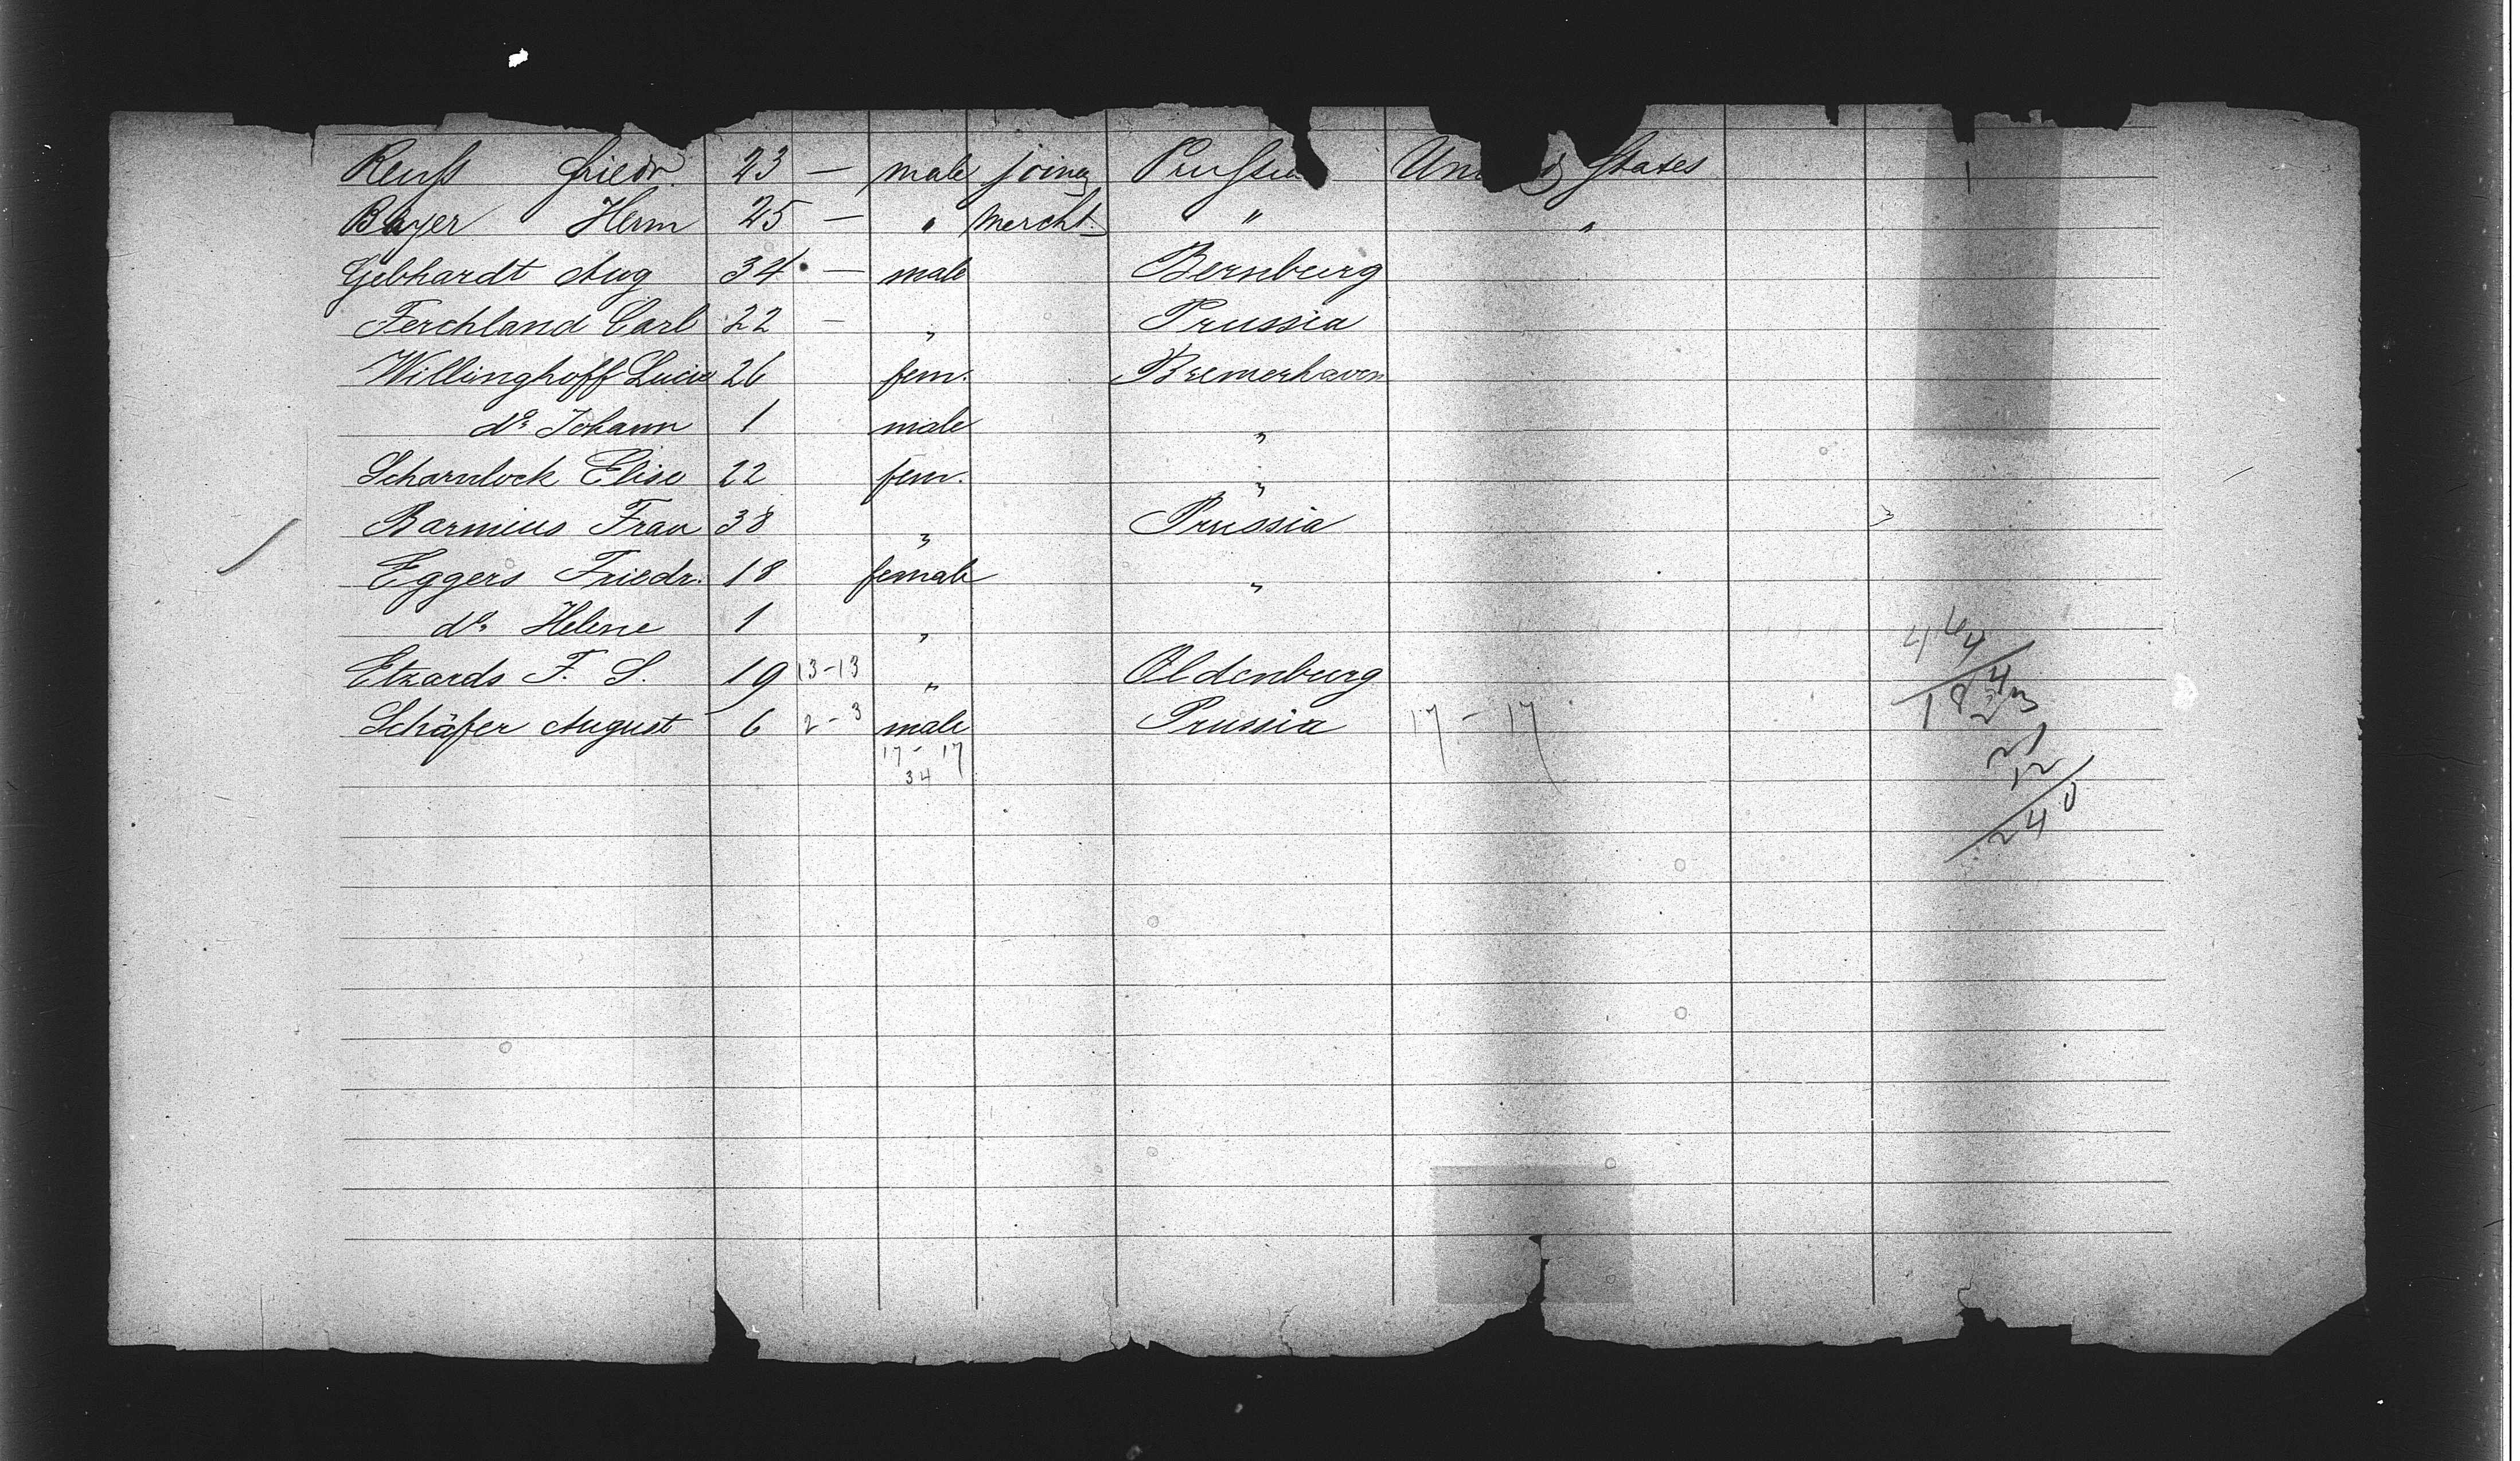 Reuß Friedr. 23 — male joiner Prussia United States
Bayer Herm 25 — " mercht. " "
Gebhardt Aug 34 — male Bernburg
Ferchland Carl 22 — " Prussia
Willinghoff Lucie 26 fem. Bremerhaven
do. Johann 1 male "
Scharnlock Elise 22 fem. "
Barmius Frau 38 " Prussia
Eggers Friedr. 18 female "
do. Helene 1 "
Etzards F. S. 19 13-13 " Oldenburg
Schäfer August 6 2-3 male Prussia 17-17
17-17
34
21
12
240